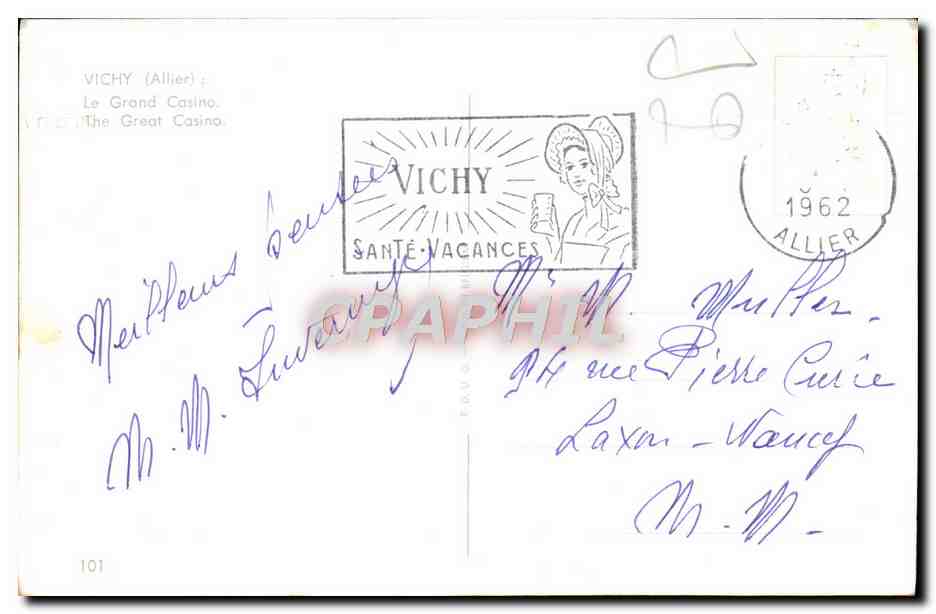 VICHY (Allier) :
Le Grand Casino.
The Great Casino.
VICHY
SANTÉ • VACANCES
1962
ALLIER
Meilleurs pensées
M. M.
Mr M. Muller.
94 rue Pierre Curie
Laxou - Nancy
M. M.
CPAPHIL
101